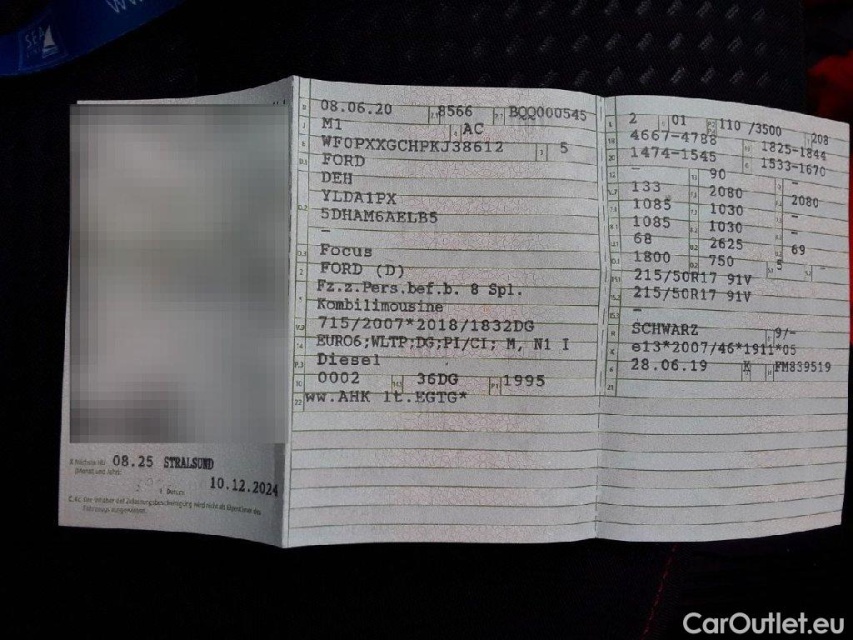 SEA
WW
08.06.20 8566 BQQ000545
M1 AC
WF0PXXGCHPKJ38612 5
FORD
DEH
YLDA1PX
5DHAM6AELB5
–
Focus
FORD (D)
Fz.z.Pers.bef.b. 8 Spl.
Kombilimousine
715/2007*2018/1832DG
EURO6;WLTP;DG;PI/CI; M, N1 I
Diesel
0002 36DG 1995
ww.AHK lt.EGTG*
2 01 110 /3500 208
4667-4788 1825-1844
1474-1545 1533-1670
– 90 –
133 2080 2080
1085 1030 –
1085 1030 –
68 2625 69
1800 750 5 –
215/50R17 91V
215/50R17 91V
–
SCHWARZ 9/–
e13*2007/46*1911*05
28.06.19 K FM839519
08.25 STRALSUND
10.12.2024
CarOutlet.eu